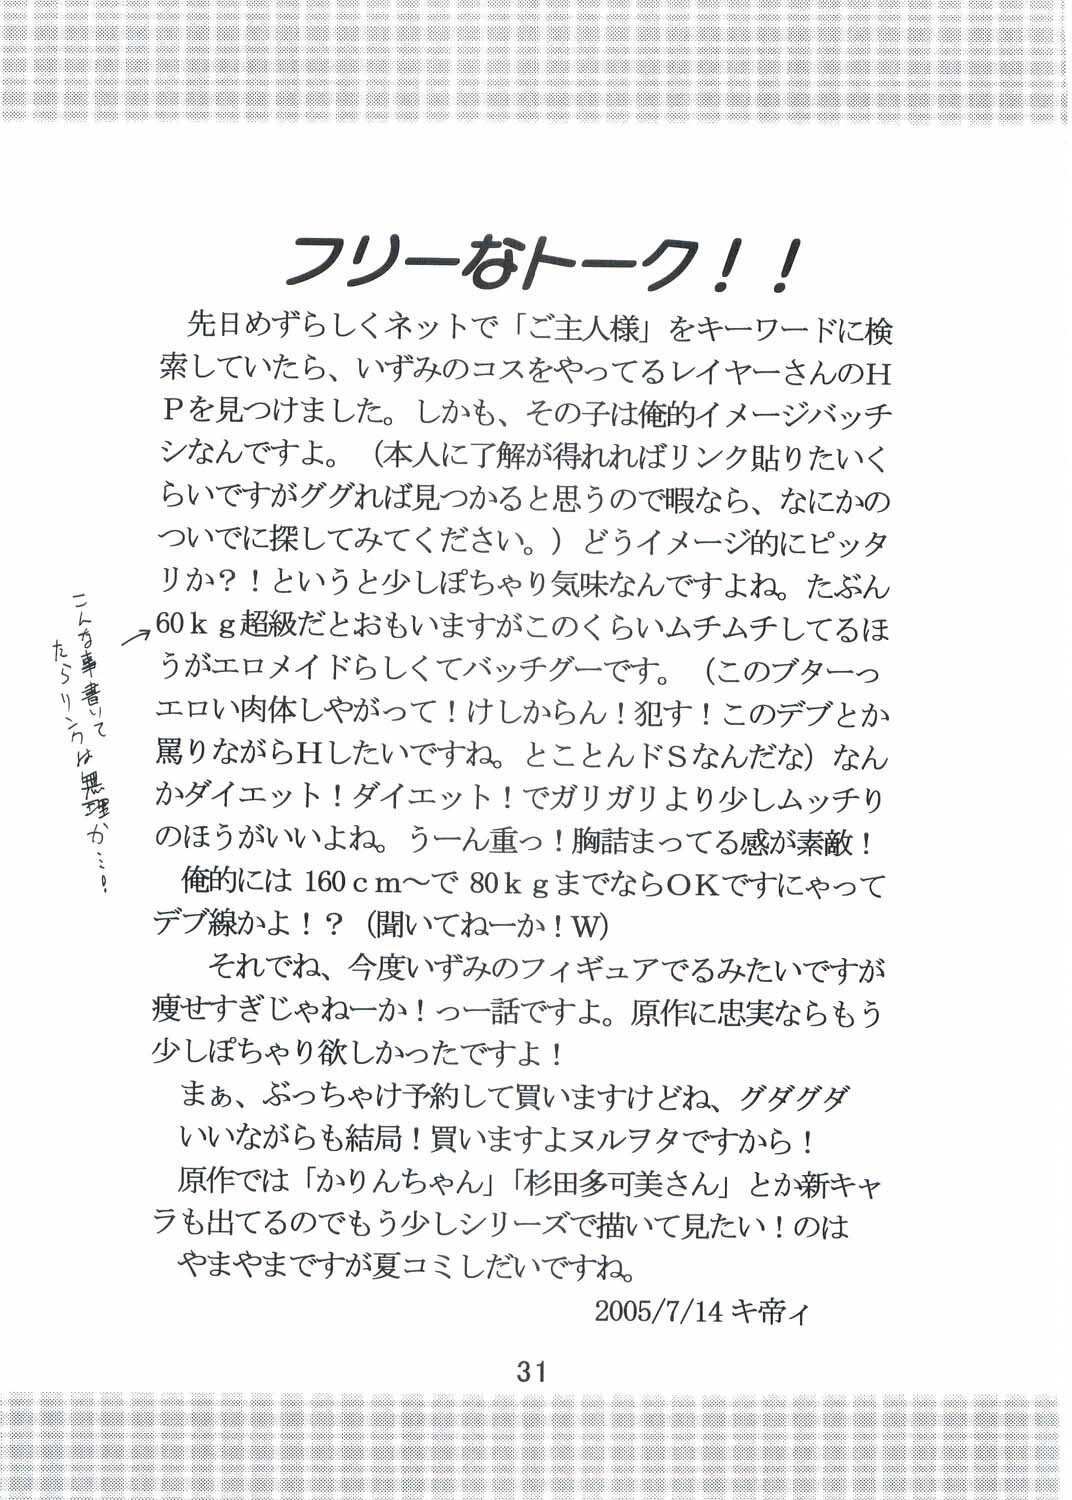 フリーなトーク！！
先日めずらしくネットで「ご主人様」をキーワードに検
索していたら、いずみのコスをやってるレイヤーさんのＨ
Ｐを見つけました。しかも、その子は俺的イメージバッチ
シなんですよ。（本人に了解が得れればリンク貼りたいく
らいですがググれば見つかると思うので暇なら、なにかの
ついでに探してみてください。）どうイメージ的にピッタ
リか？！というと少しぽちゃり気味なんですよね。たぶん
60ｋｇ超級だとおもいますがこのくらいムチムチしてるほ
うがエロメイドらしくてバッチグーです。（このブターっ
エロい肉体しやがって！けしからん！犯す！このデブとか
罵りながらＨしたいですね。とことんドＳなんだな）なん
かダイエット！ダイエット！でガリガリより少しムッチり
のほうがいいよね。うーん重っ！胸詰まってる感が素敵！
俺的には 160ｃｍ～で 80ｋｇまでならＯＫですにゃって
デブ線かよ！？（聞いてねーか！Ｗ）
それでね、今度いずみのフィギュアでるみたいですが
痩せすぎじゃねーか！っー話ですよ。原作に忠実ならもう
少しぽちゃり欲しかったですよ！
まぁ、ぶっちゃけ予約して買いますけどね、グダグダ
いいながらも結局！買いますよヌルヲタですから！
原作では「かりんちゃん」「杉田多可美さん」とか新キャ
ラも出てるのでもう少しシリーズで描いて見たい！のは
やまやまですが夏コミしだいですね。
2005/7/14 キ帝ィ
こんな事書いて
たらリンクは無理か…！
31